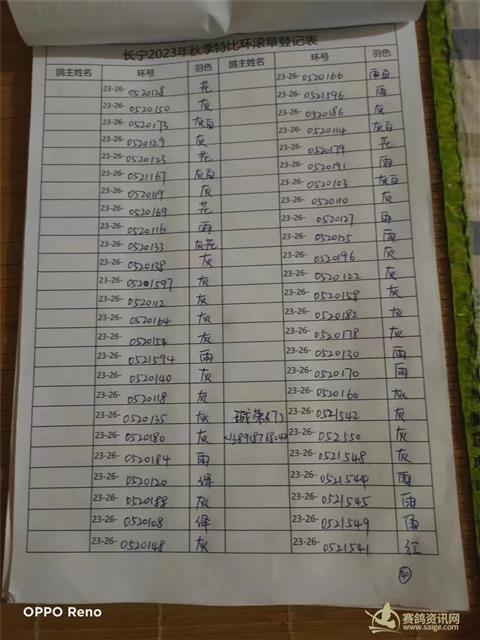 长宁2023年秋季特比环滚草登记表
鸽主姓名 环号 羽色 鸽主姓名 环号 羽色
23-26-0520128 花 23-26-0520166 雨白
23-26-0520150 灰 23-26-0521596 雨
23-26-0520173 灰白 23-26-0520186 灰
23-26-0520129 灰 23-26-0520114 灰白
23-26-0520123 花 23-26-0520179 花
23-26-0521167 灰白 23-26-0520191 雨
23-26-052019 灰 23-26-0520103 灰白
23-26-0520169 花 23-26-0520110 灰
23-26-0520116 雨 23-26-0520127 雨
23-26-0520133 灰花 23-26-0520125 雨
23-26-0520138 灰 23-26-0520196 灰
23-26-05201597 灰 23-26-0520122 灰
23-26-0520112 灰 23-26-0520158 灰
23-26-0520164 灰 23-26-0520182 灰
23-26-0520154 灰 23-26-0520178 灰
23-26-0521594 雨 23-26-0520130 雨
23-26-0520140 灰 23-26-0520170 雨
23-26-0520118 灰 23-26-0520160 灰
23-26-0520135 灰 23-26-0521542 灰
23-26-0520180 灰 23-26-052550 灰
23-26-0520184 雨 23-26-0521548 灰
23-26-0520120 绛 23-26-0521544 雨
23-26-0520188 灰 23-26-0521545 雨
23-26-0520108 绛 23-26-0521549 雨
23-26-0520148 灰 23-26-0521541 红
OPPO Reno
赛鸽资讯网
www.saige.com